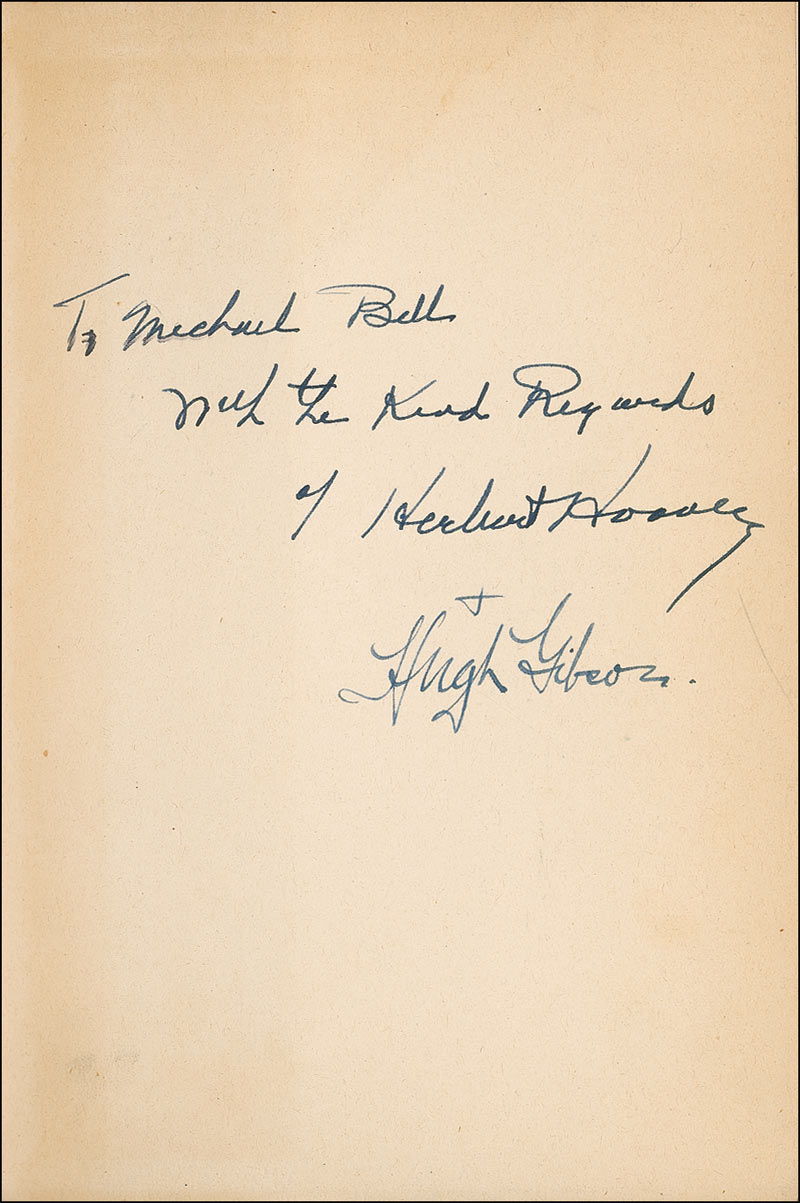 To Michael Bell
With the Kind Regards
of Herbert Hoover
+
Hugh Gibson.